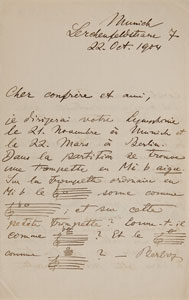 Munich
Lerchenfeldstrasse 7
22. Oct. 1904
Cher confrère et ami,
je dirigerai votre Symphonie
le 21. Novembre à Munich et
le 22. Mars à Berlin.
Dans la partition se trouve
une trompette en Mi b aigu.
Sur la trompette ordinaire en
Mi b le sonne comme
, et sur cette
petite trompette? sonne-t-il
comme ? Et le
comme ? — Berlioz